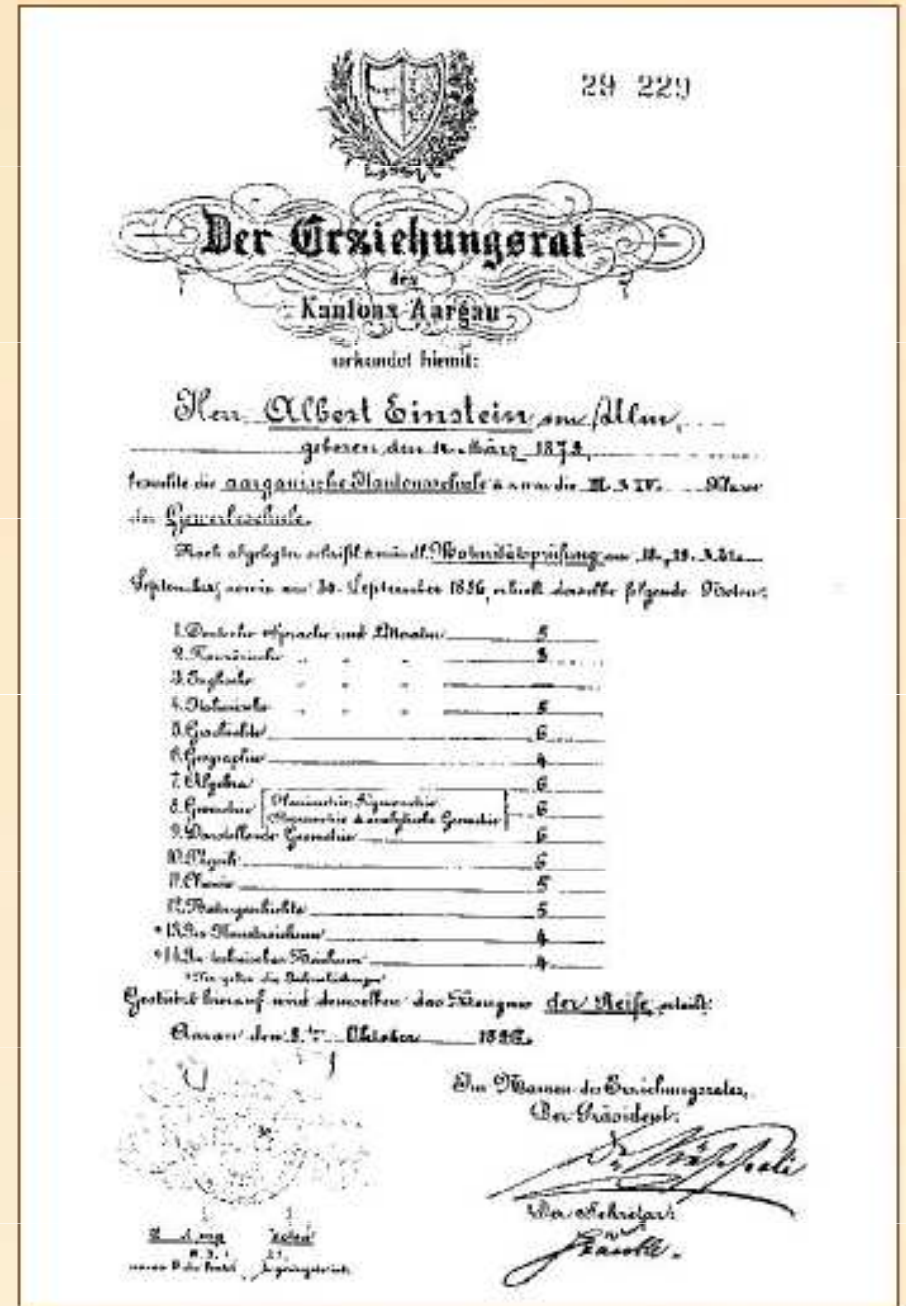 29 229
Der Erziehungsrat
des
Kantons Aargau
urkundet hiemit:
Herr Albert Einstein von Ulm,
geboren den 14. März 1879,
besuchte die aargauische Kantonsschule & zwar die III. & IV. Klasse
der Gewerbeschule.
Nach abgelegter schriftl. & mündl. Maturitätsprüfung am 18., 19. & 21.
September, sowie am 30. September 1896, erhielt derselbe folgende Noten:
1. Deutsche Sprache und Litteratur 5
2. Französische " " " 3
3. Englische " " "
4. Italienische " " " 5
5. Geschichte 6
6. Geographie 4
7. Algebra 6
8. Geometrie Planimetrie, Trigonometrie 6
Stereometrie & analytische Geometrie
9. Darstellende Geometrie 6
10. Physik 6
11. Chemie 5
12. Naturgeschichte 5
* 13. Im Kunstzeichnen 4
* 14. Im technischen Zeichnen 4
* Hier gelten die Jahresleistungen
Gestützt hierauf wird demselben das Zeugnis der Reife erteilt.
Aarau den 3. ten Oktober 1896.
Im Namen des Erziehungsrates,
Der Präsident:
Der Sekretär: